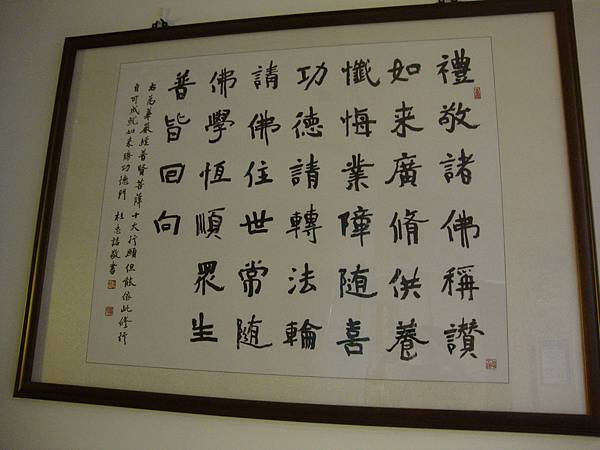 禮敬諸佛稱讃
如来廣脩供養
懺悔業障随喜
功德請轉法輪
請佛住世常随
佛學恆順眾生
普皆回向
右為華嚴經普賢菩薩十大行願但能依此修行
自可成就如来勝功德門 杜忠誥敬書